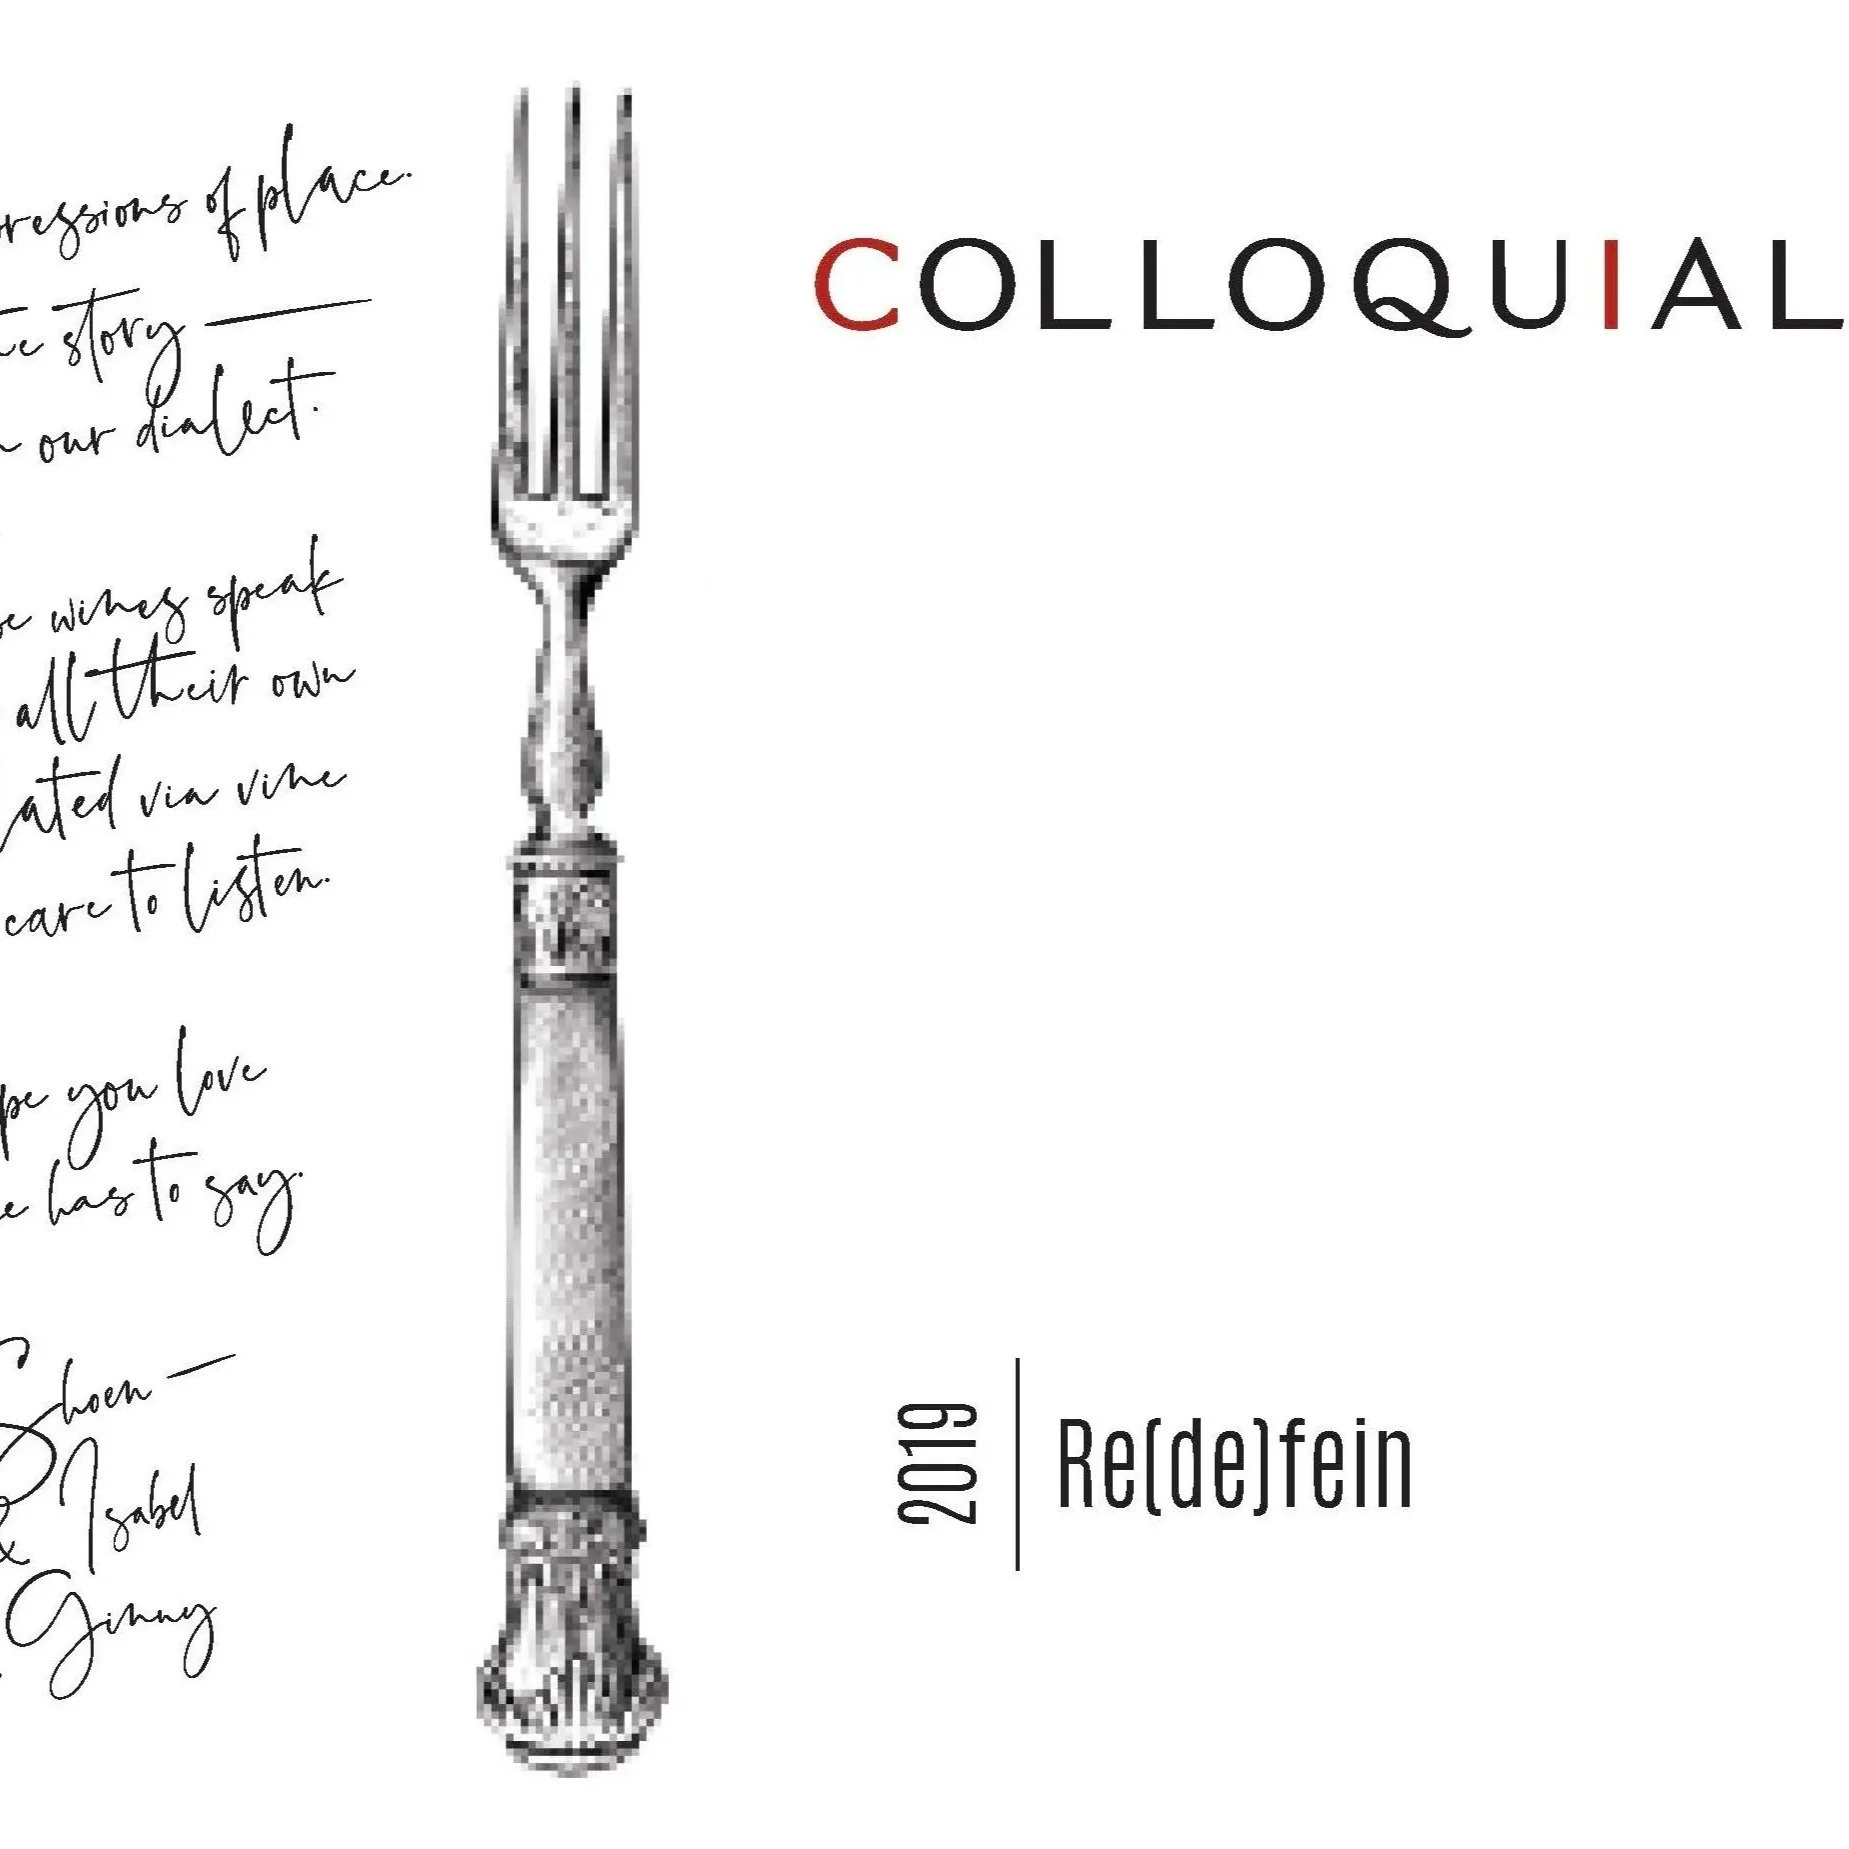 of place.
story —
our dialect.
wines speak
all their own
via vine
care to listen.
you love
has to say.
Shoen —
& Isabel
Ginny
COLLOQUIAL
2019
Re(de)fein